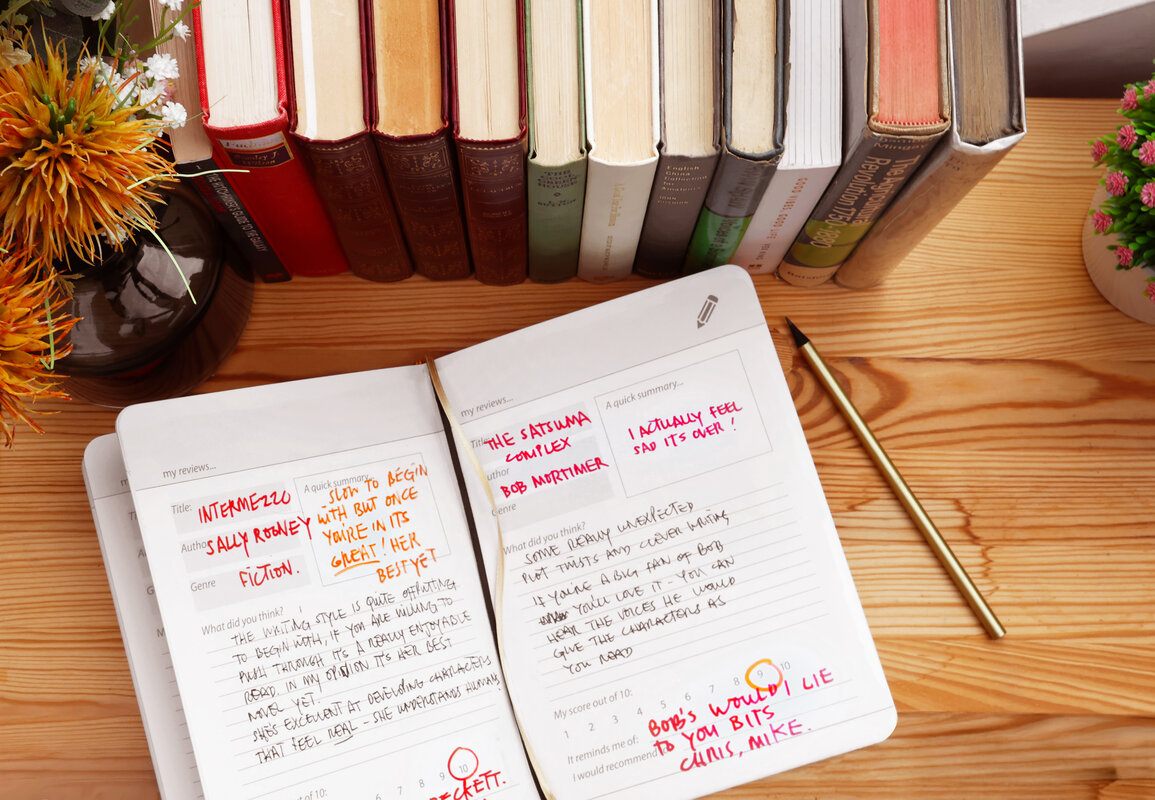 THE HITCHHIKER'S GUIDE TO THE GALAXY
Stanley J.
English
China
Collecting
for
Amateurs
GOOD VIBES, GOOD LIFE
VEX KING
The Agricultural
Revolution 1750-1880
my reviews...
Title: INTERMEZZO
Author SALLY ROONEY
Genre FICTION.
A quick summary
SLOW TO BEGIN
WITH BUT ONCE
YOU'RE IN ITS
GREAT! HER
BEST YET
What did you think?
THE WRITING STYLE IS QUITE OFFPUTTING
TO BEGIN WITH, IF YOU ARE WILLING TO
PUSH THROUGH IT'S A REALLY ENJOYABLE
READ. IN MY OPINION IT'S HER BEST
NOVEL YET.
SHE'S EXCELLENT AT DEVELOPING CHARACTERS
THAT FEEL REAL - SHE UNDERSTANDS HUMANS
out of 10:
6 7 8 9 10
BECKETT.
my reviews...
Title: THE SATSUMA
COMPLEX
Author
BOB MORTIMER
Genre
A quick summary...
I ACTUALLY FEEL
SAD IT'S OVER!
What did you think?
SOME REALLY UNEXPECTED
PLOT TWISTS AND CLEVER WRITING
IF YOU'RE A BIG FAN OF BOB
YOU'LL LOVE IT - YOU CAN
HEAR THE VOICES HE WOULD
GIVE THE CHARACTERS AS
YOU READ
My score out of 10:
1 2 3 4 5 6 7 8 9 10
It reminds me of: BOB'S WOULD I LIE
TO YOU BITS
I would recommend CHRIS, MIKE.